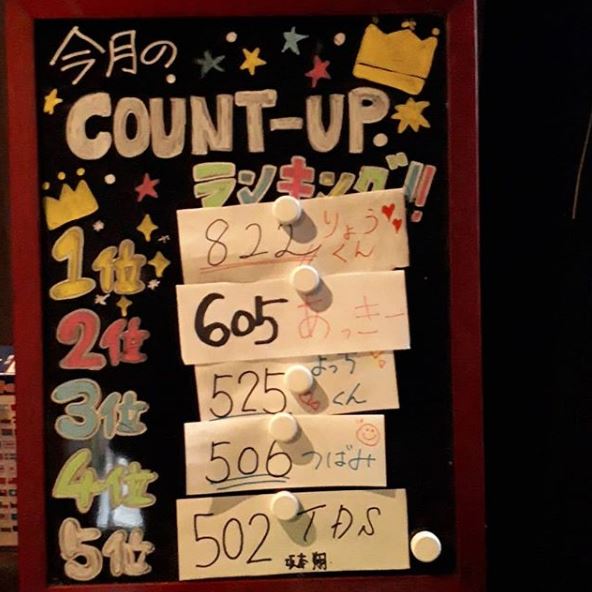 今月の
COUNT-UP
ランキング!!
1位 822 りょうくん
2位 605 あっきー
3位 525 よっちくん
4位 506 つばみ
5位 502 TDS
坂本翔